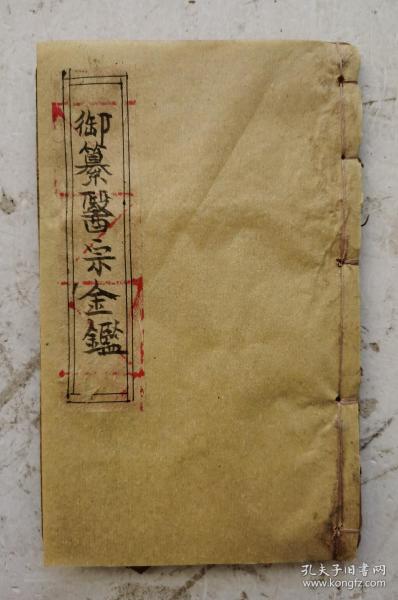 御纂醫宗金鑑
孔夫子旧书网
http://www.kongfz.com